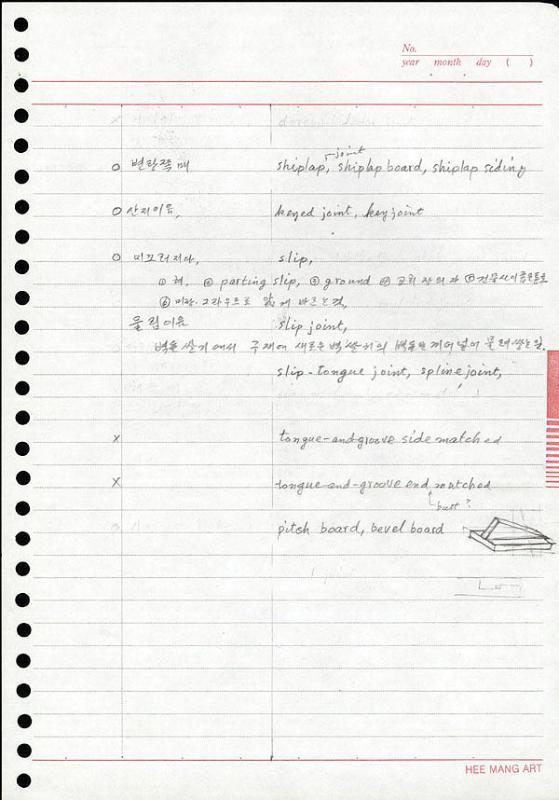 No.
year month day ( )
x
o 변탕쪽매 shiplap, shiplap joint board, shiplap siding
o 산지이음, keyed joint, key joint
o 미끄러지다, slip,
① 혀, ② parting slip, ③ ground ④ ⑤
⑥ 미장. 그라우트로 얇게 바르는 것,
물림이음 slip joint,
벽돌 쌓기에서 새로운 벽 쌓기의
slip-tongue joint, spline joint,
x tongue-and-groove side matched
x tongue-and-groove end matched
butt ?
pitch board, bevel board
HEE MANG ART